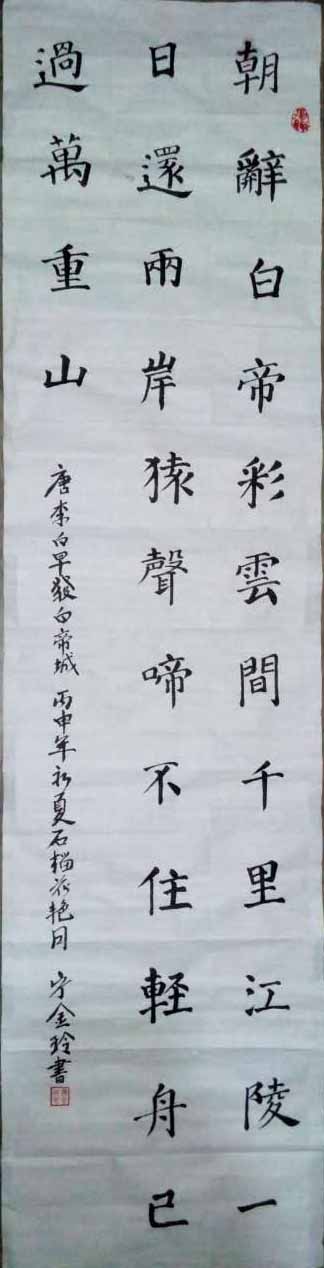 朝辭白帝彩雲間千里江陵一
日還兩岸猿聲啼不住輕舟已
過萬重山
唐李白早發白帝城 丙申年初夏石榴花艳月 宁金玲書